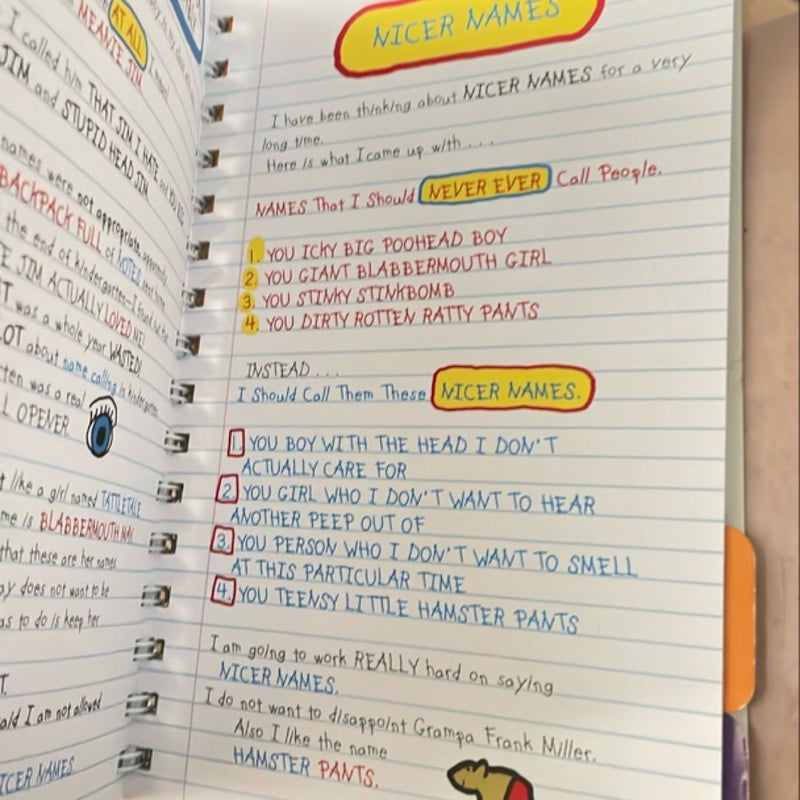 AT ALL I mean!
MEANIE JIM.
I called him THAT JIM I HATE and
JIM and STUPID HEAD JIM.
names were not appropriate, apparently.
BACKPACK FULL of NOTES sent home.
the end of kindergarten—I found out that
JIM ACTUALLY LOVED ME!
was a whole year WASTED!
LOT about name calling in kindergarten.
was a real
OPENER.
like a girl named TATTLETALE
me is BLABBERMOUTH
that these are her names
does not want to be
to do is keep her
I am not allowed
NICER NAMES.
NICER NAMES
I have been thinking about NICER NAMES for a very
long time.
Here is what I came up with . . .
NAMES That I Should NEVER EVER Call People.
1. YOU ICKY BIG POOHEAD BOY
2. YOU GIANT BLABBERMOUTH GIRL
3. YOU STINKY STINKBOMB
4. YOU DIRTY ROTTEN RATTY PANTS
INSTEAD . . .
I Should Call Them These NICER NAMES.
1. YOU BOY WITH THE HEAD I DON'T
ACTUALLY CARE FOR
2. YOU GIRL WHO I DON'T WANT TO HEAR
ANOTHER PEEP OUT OF
3. YOU PERSON WHO I DON'T WANT TO SMELL
AT THIS PARTICULAR TIME
4. YOU TEENSY LITTLE HAMSTER PANTS
I am going to work REALLY hard on saying
NICER NAMES.
I do not want to disappoint Grampa Frank Miller.
Also I like the name
HAMSTER PANTS.